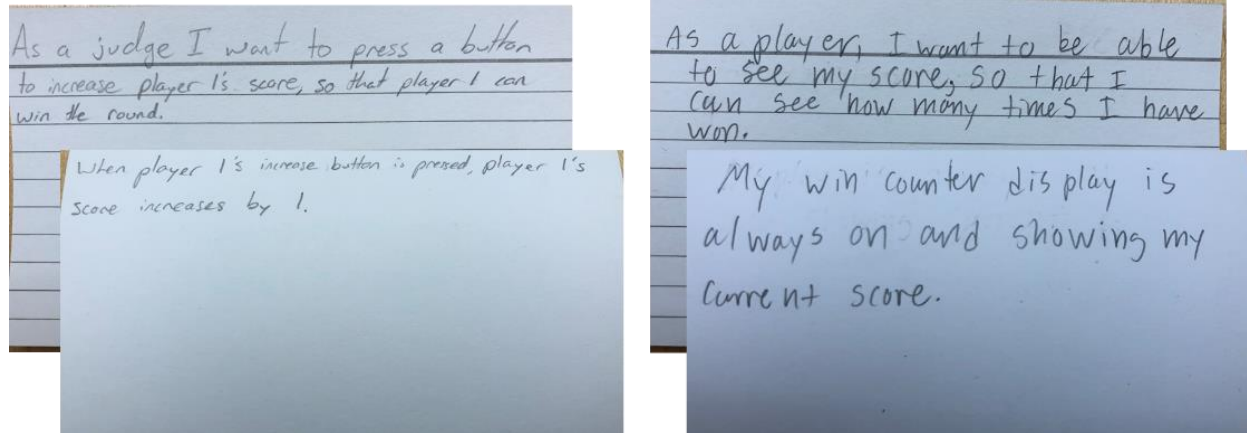 As a judge I want to press a button
to increase player 1's score, so that player 1 can
win the round.
When player 1's increase button is pressed, player 1's
score increases by 1.
As a player, I want to be able
to see my score, so that I
can see how many times I have
won.
My win counter display is
always on and showing my
current score.